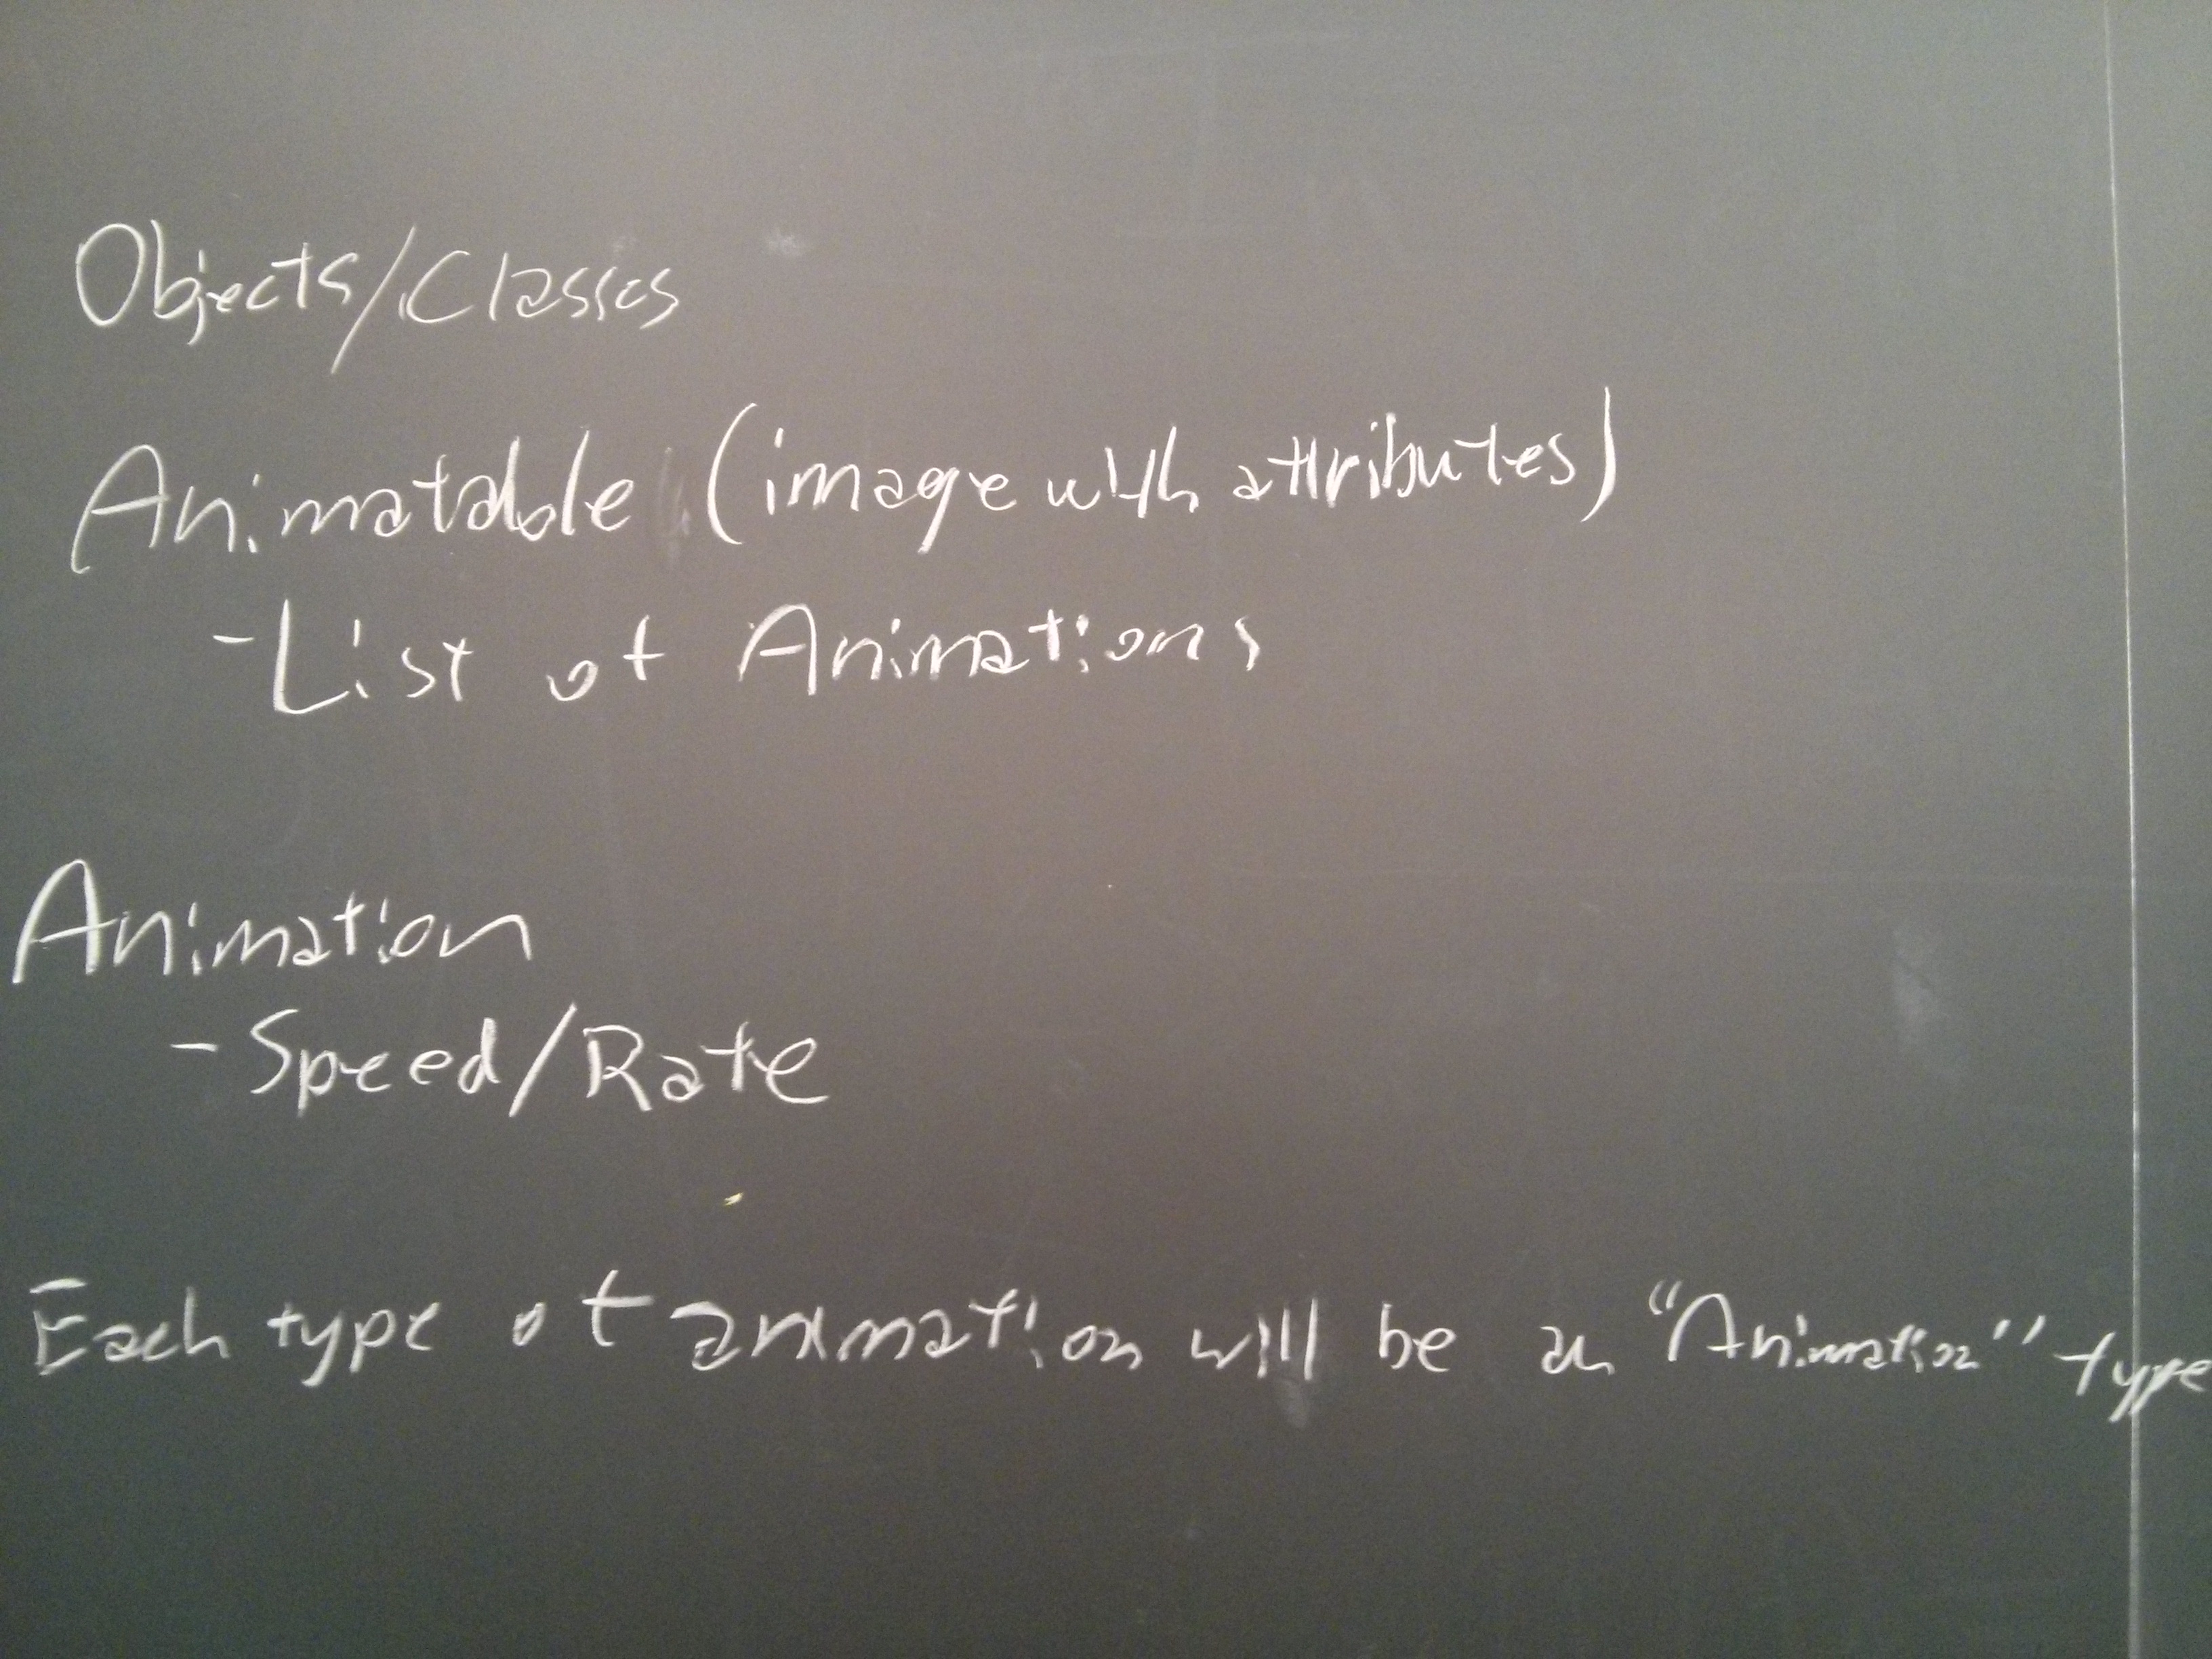 Objects/Classes
Animatable (image with attributes)
-List of Animations
Animation
-Speed/Rate
Each type of animation will be an "Animation" type